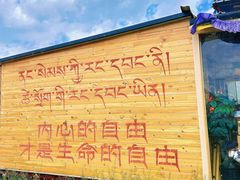 ནང་སེམས་ཀྱི་རང་དབང་ནི།
ཚེ་སྲོག་གི་རང་དབང་ཡིན།
内心的自由
才是生命的自由